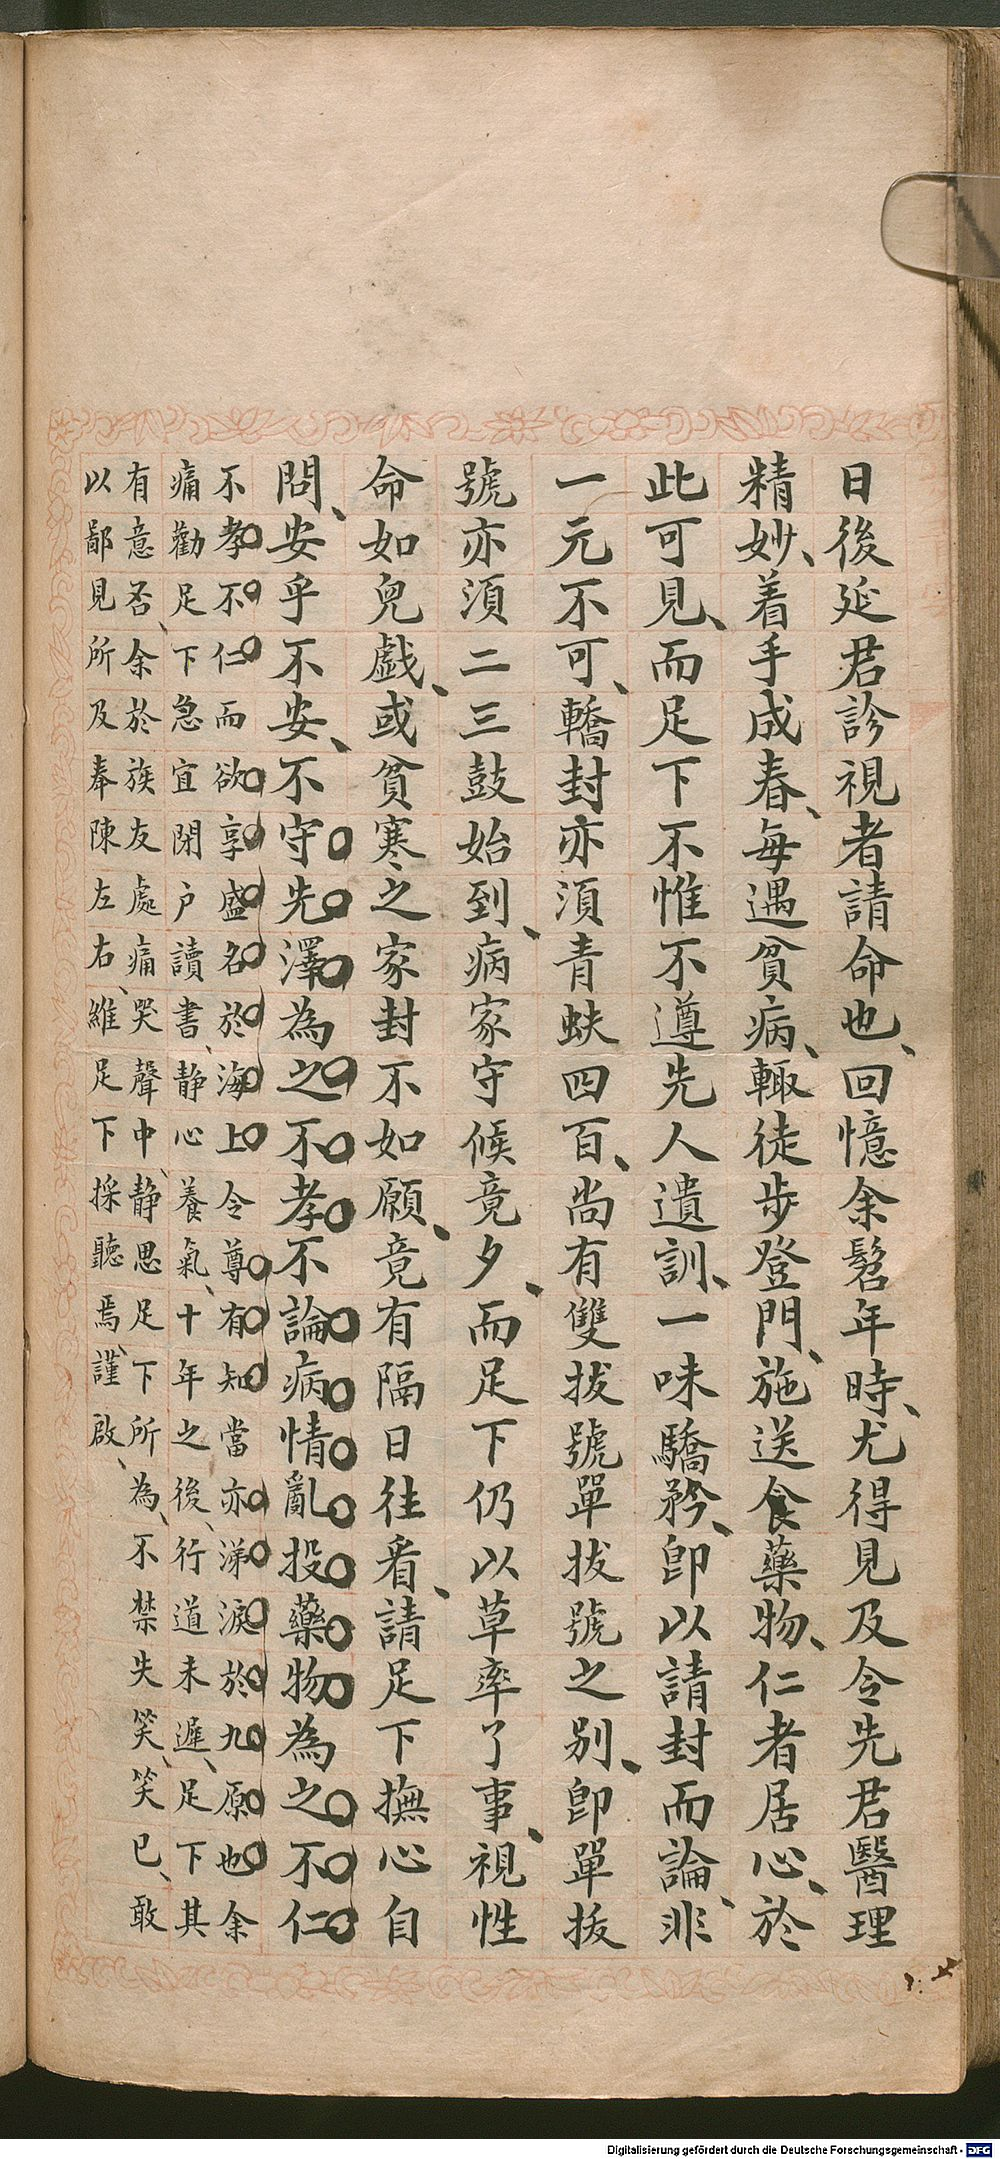 日後延君診視者請命也、回憶余髫年時、尤得見及令先君醫理
精妙、着手成春、每遇貧病、輙徒步登門、施送食藥物、仁者居心、於
此可見、而足下不惟不遵先人遺訓、一味驕矜、卽以請封而論、非
一元不可、轎封亦須青蚨四百、尚有雙拔號單拔號之別、卽單拔
號亦須二三鼓始到、病家守候竟夕、而足下仍以草率了事、視性
命如兒戲、或貧寒之家封不如願、竟有隔日往看、請足下撫心自
問、安乎不安、不守先澤為之不孝不論病情亂投藥物為之不仁
不孝不仁而欲享盛名於海上令尊有知當亦涕淚於九原也余
痛勸足下急宜閉户讀書、静心養氣、十年之後、行道未遲、足下其
有意否、余於族友處痛哭聲中、静思足下所為、不禁失笑、笑已、敢
以鄙見所及奉陳左右、維足下採聽焉、謹啟、
Digitalisierung gefördert durch die Deutsche Forschungsgemeinschaft - DFG